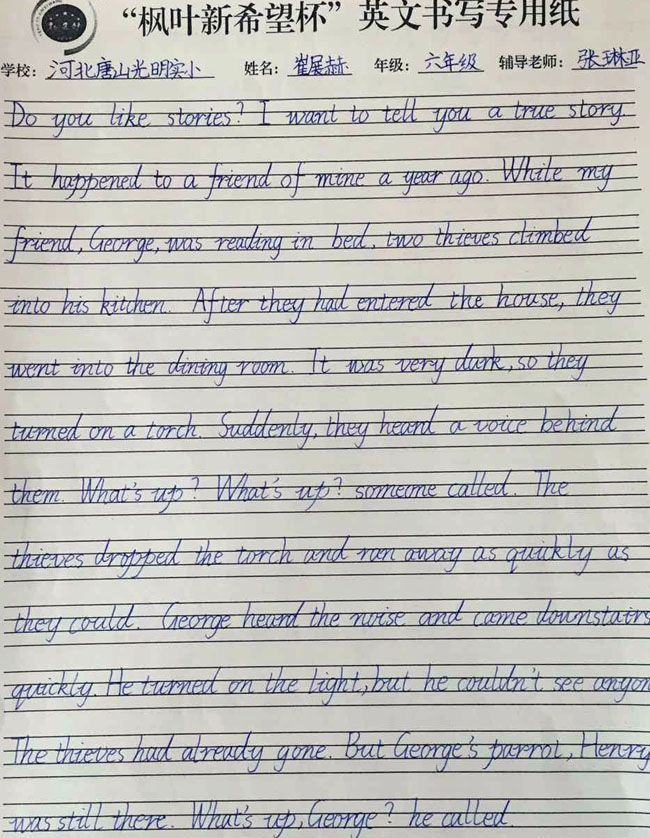 “枫叶新希望杯”英文书写专用纸
学校：河北唐山光明实小 姓名：崔展赫 年级：六年级 辅导老师：张琳亚
Do you like stories? I want to tell you a true story.
It happened to a friend of mine a year ago. While my
friend, George, was reading in bed, two thieves climbed
into his kitchen. After they had entered the house, they
went into the dining room. It was very dark, so they
turned on a torch. Suddenly, they heard a voice behind
them. What's up? What's up? someone called. The
thieves dropped the torch and ran away as quickly as
they could. George heard the noise and came downstairs
quickly. He turned on the light, but he couldn't see anyon
The thieves had already gone. But George's parrot, Henry
was still there. What's up, George? he called.